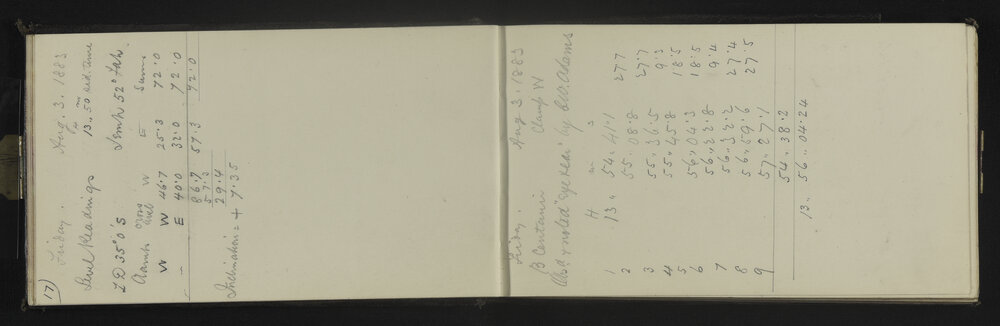 17)
Friday. Aug. 3. 1883
Level Readings 13h..50m sid. time
ZD 35°0'S Temp 52° Fah.
Long Level W E Sums
W W 46.7 25.3 72.0
– E 40.0 32.0 72.0
86.7 57.3 72.0
57.3
29.4
Inclination = + 7.35
Friday. Aug 3. 1883
β Centauri Clamp W
Obsd & noted "eye & ear" by C.W. Adams
H m s
1 13.. 54.. 41.1
2 55.. 08.8 27.7
3 55.. 36.5 27.7
4 55.. 45.8 9.3
5 56.. 04.3 18.5
6 56.. 22.8 18.5
7 56.. 32.2 9.4
8 56.. 59.6 27.4
9 57.. 27.1 27.5
54.. 38.2
13.. 56.. 04.24